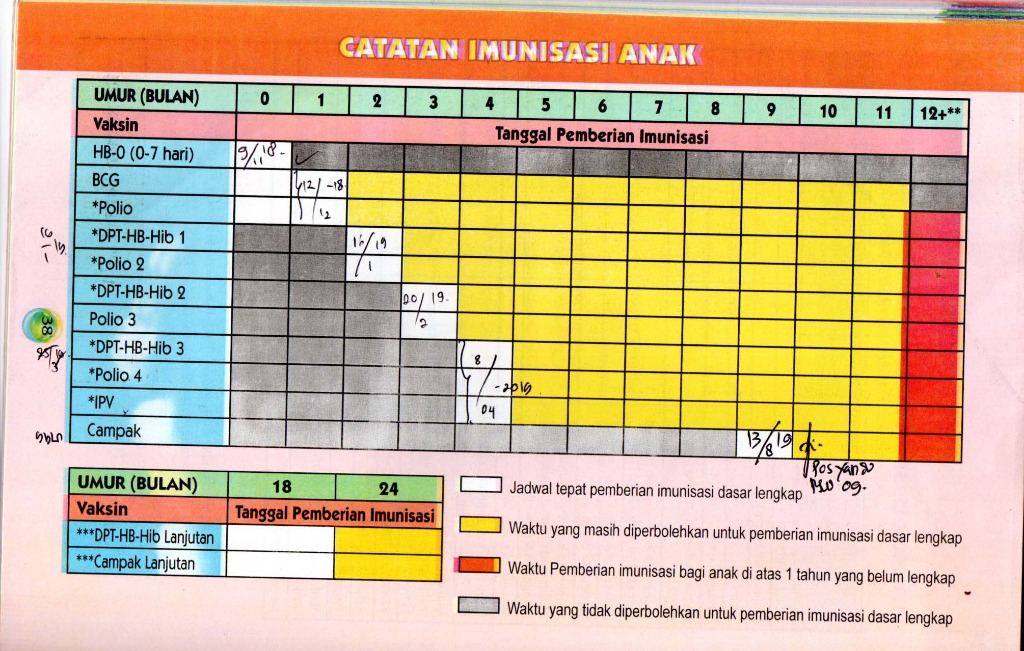 CATATAN IMUNISASI ANAK
UMUR (BULAN) 0 1 2 3 4 5 6 7 8 9 10 11 12+**
Vaksin Tanggal Pemberian Imunisasi
HB-0 (0-7 hari) 9/11 18-
BCG 12/12 -18
*Polio
*DPT-HB-Hib 1 16/1 19
*Polio 2
*DPT-HB-Hib 2 20/2 19-
Polio 3
*DPT-HB-Hib 3 8/04 -2019
*Polio 4
*IPV
Campak 13/8 19
16/1 19
38
UMUR (BULAN) 18 24
Vaksin Tanggal Pemberian Imunisasi
***DPT-HB-Hib Lanjutan
***Campak Lanjutan
Jadwal tepat pemberian imunisasi dasar lengkap
Waktu yang masih diperbolehkan untuk pemberian imunisasi dasar lengkap
Waktu Pemberian imunisasi bagi anak di atas 1 tahun yang belum lengkap
Waktu yang tidak diperbolehkan untuk pemberian imunisasi dasar lengkap